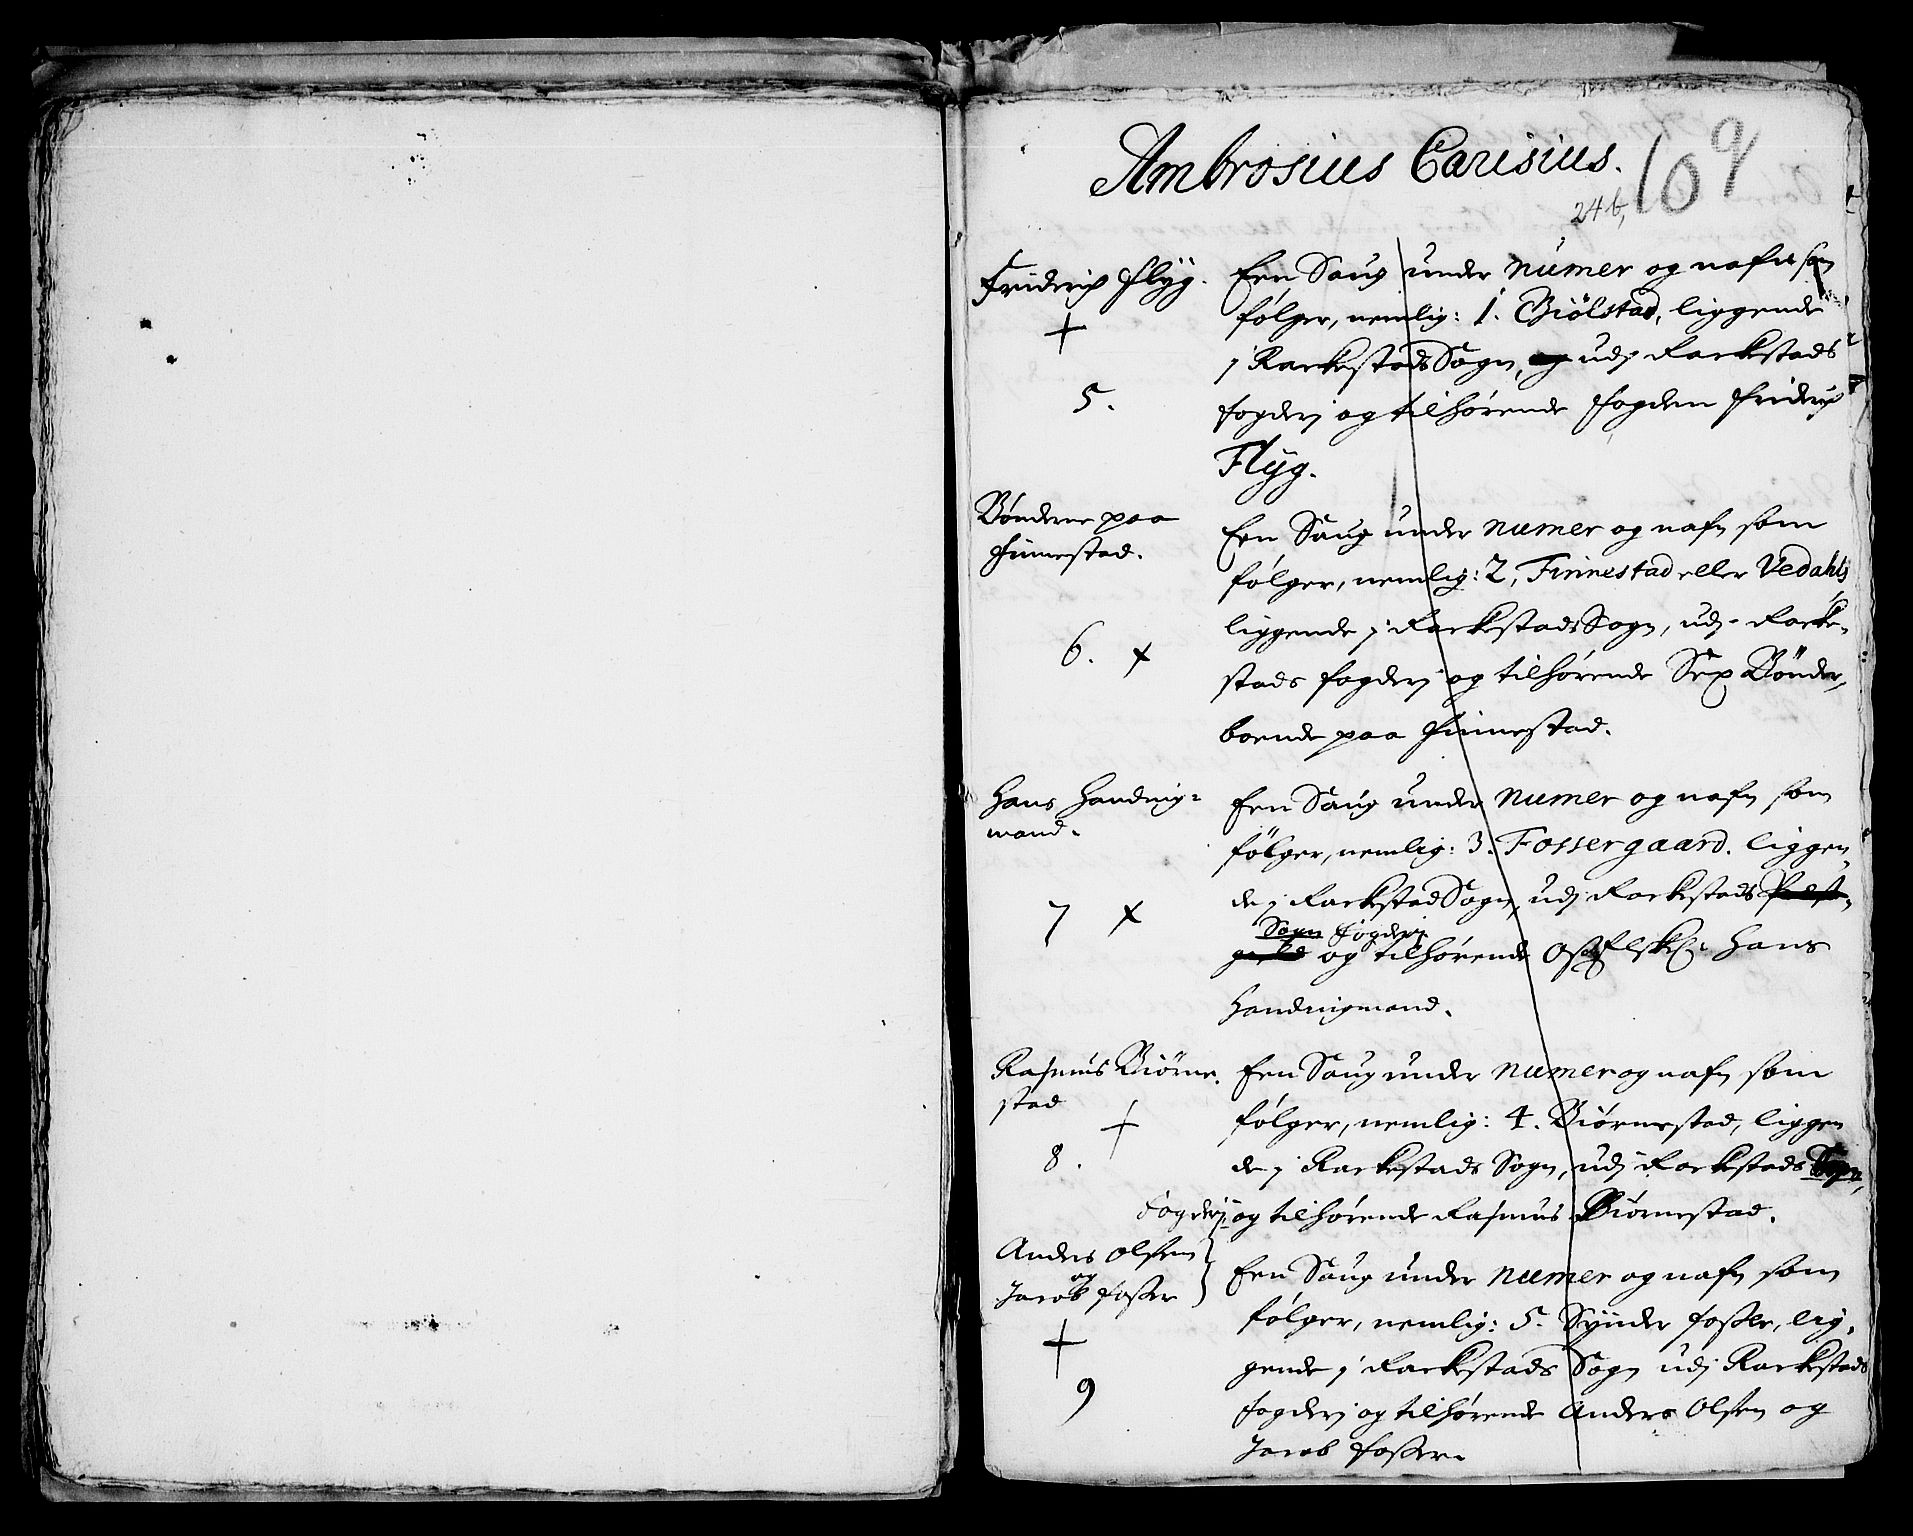 Ambrosius Carisius.
109
24 b,
Friderich Flyg.
+
5.
Een Saug under numer og nafn som
følger, nemlig: 1. Giölstad, liggende
j Rackestads Sogn, udj Rackestads
fogderj og tilhørende fogden Friderich
Flyg.
Bønderne paa
Finnestad.
6. +
Een Saug under numer og nafn som
følger, nemlig: 2, Finnestad eller Vedahls
liggende j Rackestads Sogn, udj Racke-
stads fogderj og tilhørende Sex Bønder,
boende paa Finnestad.
Hans Handnig-
mand.
7 +
Een Saug under numer og nafn som
følger, nemlig: 3. Fossergaard. liggen-
de j Rackestad Sogn, udj Rackestads
Sogn fogderj
og tilhørende Hans
Handnigmand.
Rasmus Biörne-
stad
+
8.
Een Saug under numer og nafn som
følger, nemlig: 4. Biørnestad, liggen
de j Rackestads Sogn, udj Rackestads Sogn,
Fogderj og tilhørende Rasmus Biörnestad.
Anders Olsen
og
Jacob Fosser
+
9
Een Saug under numer og nafn som
følger, nemlig: 5. Synder Fosser, lig-
gende j Rackestads Sogn udj Rackestads
fogderj og tilhørende Anders Olsen og
Jacob Fosser.